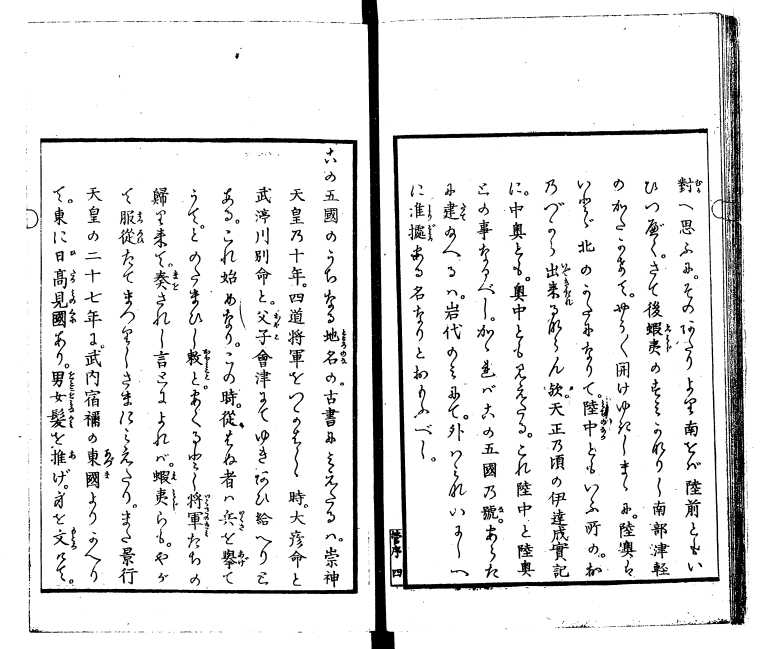 對へ思ふに。そのわたりより南をば陸前ともい
ひつべく。さて後蝦夷のすみかれりし南部津輕
のかたかけて。やうく開けゆきしまゝに。陸奥も
いとゞ北のかたになりて。陸中ともいふ所の。お
乃づから出来るなりけん歟。天正乃頃の伊達成實記
に。中奥とも。奥中とも見えたる。これ陸中と陸奥
との事なるべし。かくれバこの五國乃號。あらた
に建かへるハ。岩代のみにて。外ハみれいましへ
に准據ある名なりとおもふべし。
管序 四
この五國のうちなる地名の。古書にみえたるハ。崇神
天皇乃十年。四道将軍をつかはしゝ時。大彦命と
武渟川別命と。父子會津にてゆきあひ給へりと
ある。これ始めなり。この時。從はぬ者ハ兵を擧て
うてとのたまひし敎と。あくる年将軍たちの
歸り来て。奏されし言とによれバ。蝦夷らも。やが
て服從たてまつりしさまにみえたり。また景行
天皇の二十七年に。武内宿禰の東國よりかへり
て。東に日高見國あり。男女髮を推げ。身を文けて。